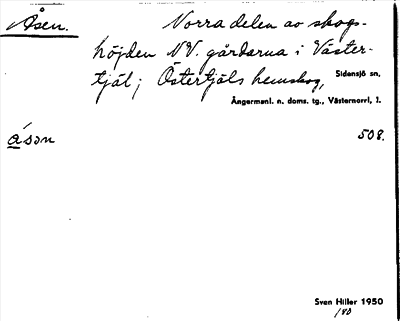 Åsen. Norra delen av skogs-
höjden NV. gårdarna i Väster-
tjäl; Östertjäls hemskog, Sidensjö sn,
Ångermanl. n. doms. tg., Västernorrl, l.
åˊson 508.
Sven Hiller 1950
180